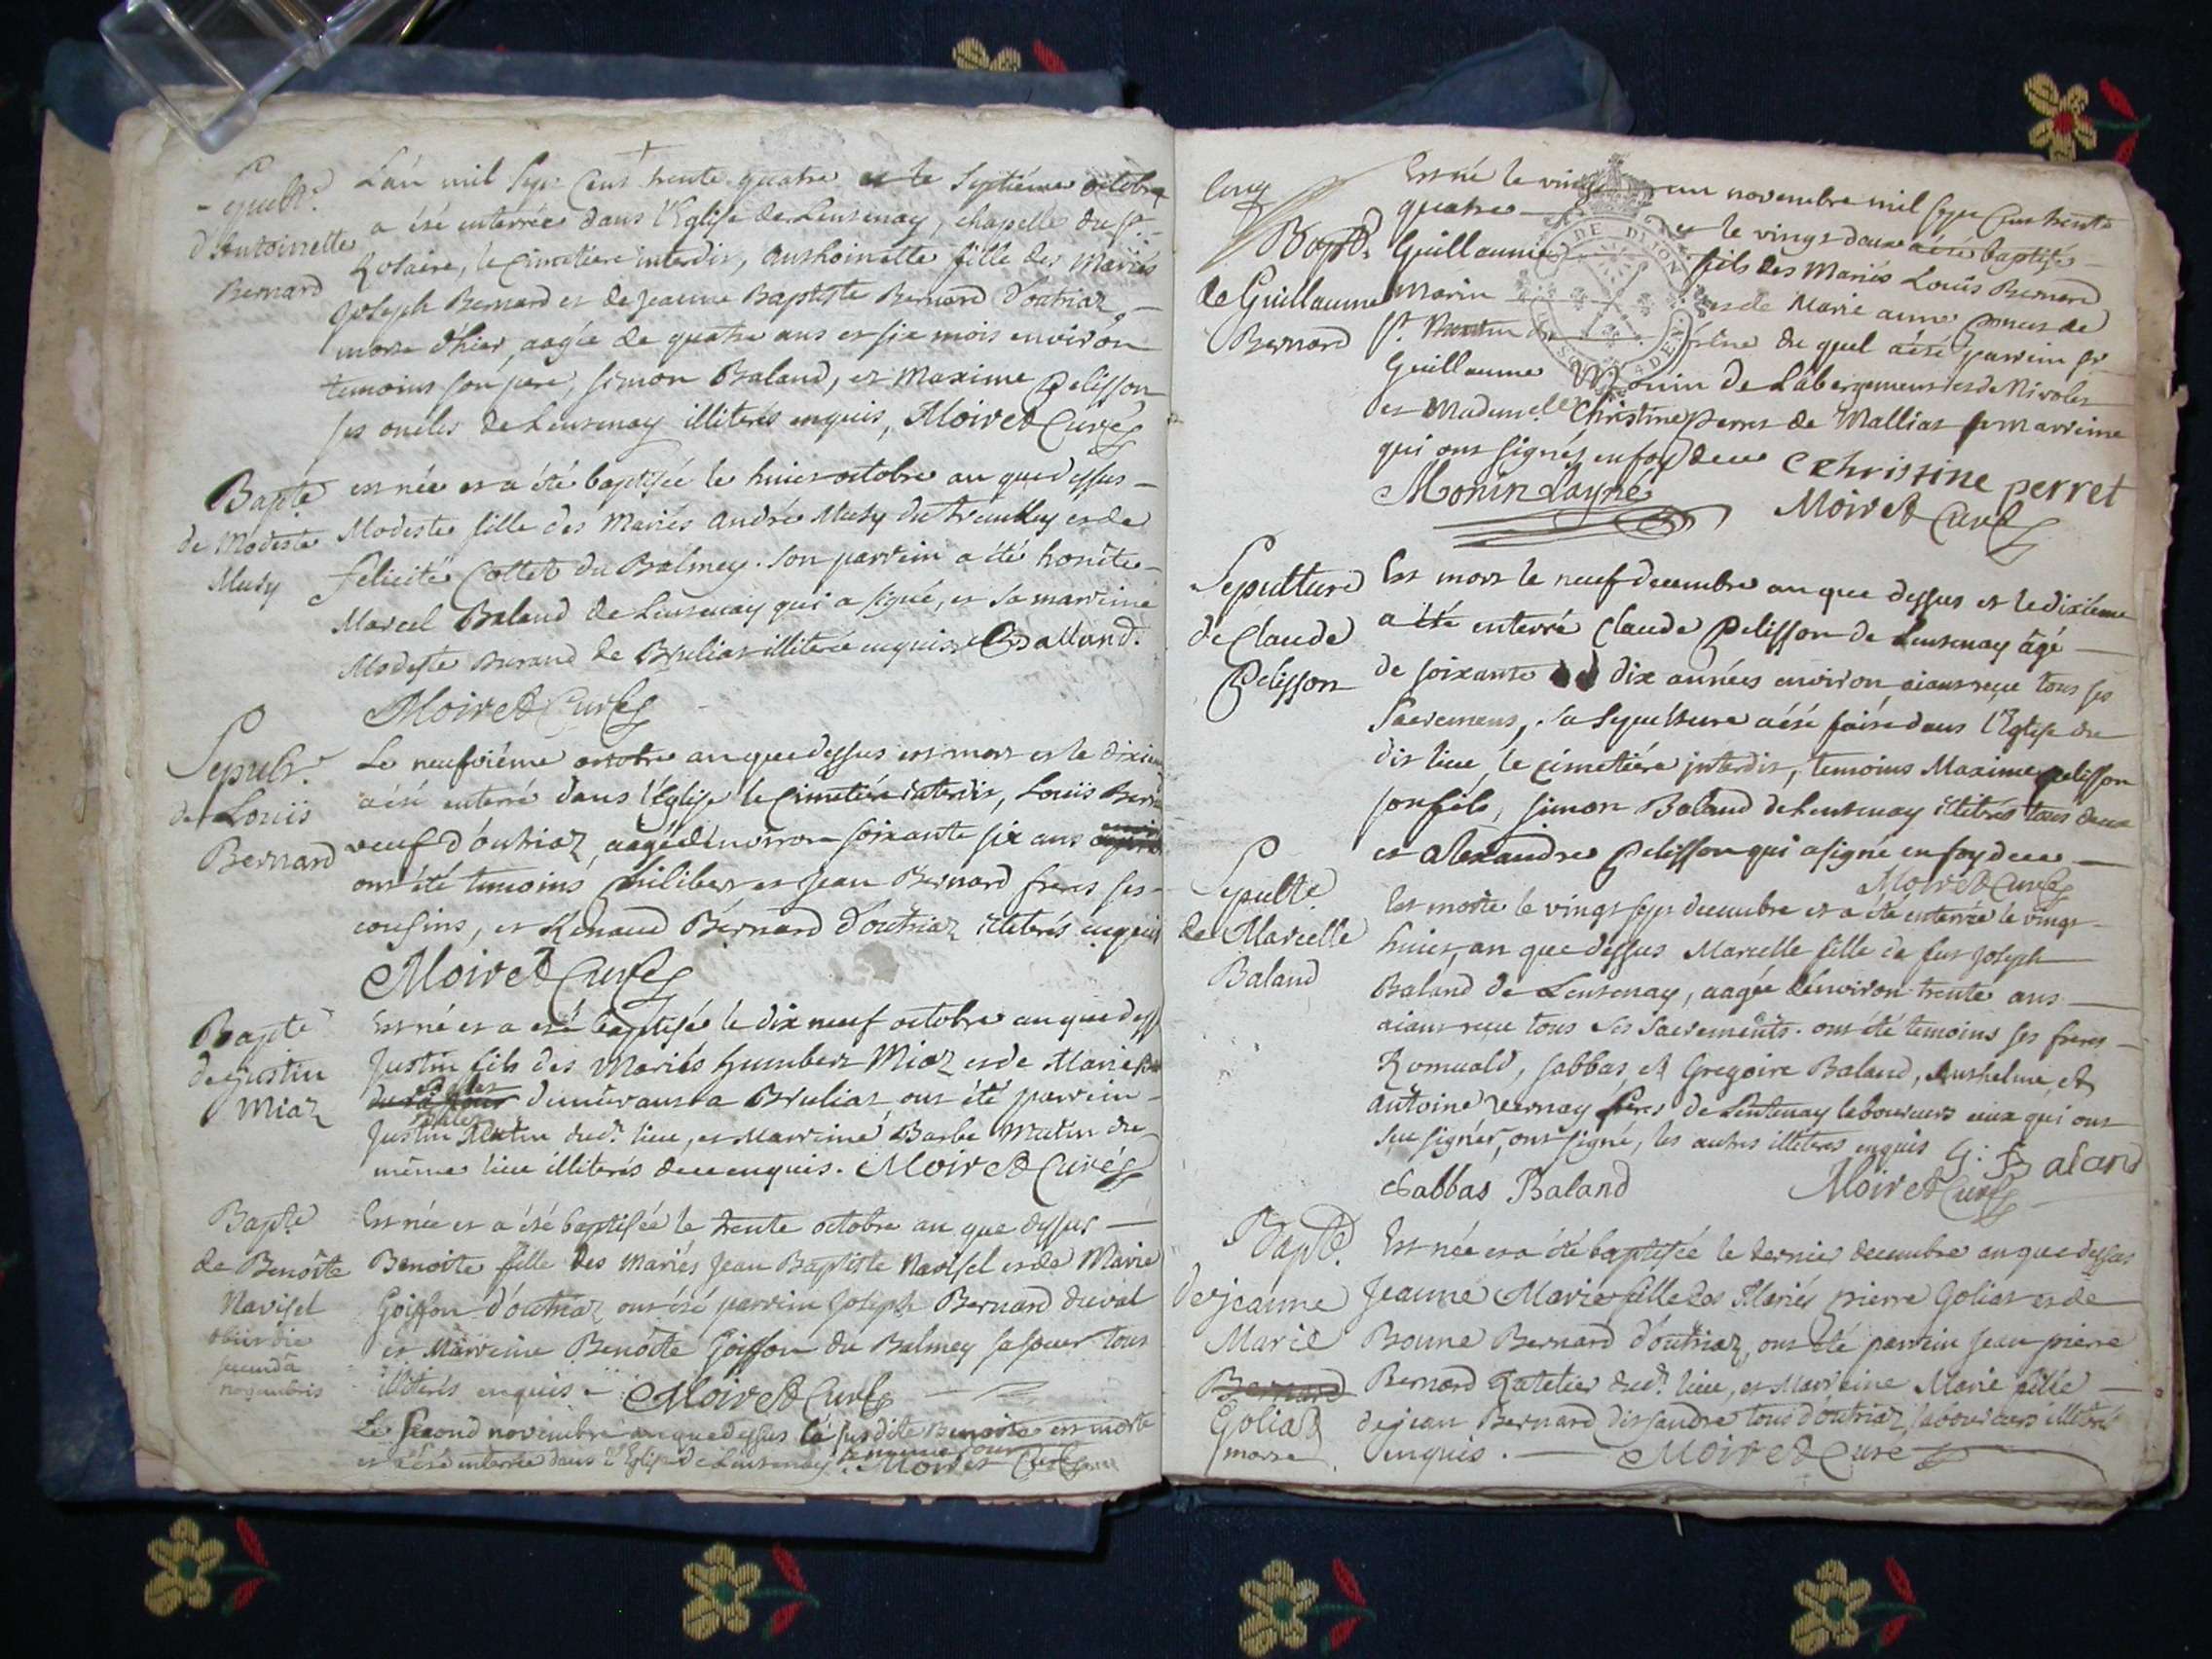 Sepult.e
d'Antoinette
Bernard
L'an mil Sept Cent trente quatre et le Septiéme octobre
a été enterrée dans l'Eglise de Leusenay, chapelle du St.
Rosaire, le Cimetiere interdit, Anthoinette fille des Mariés
Joseph Bernard et de Jeanne Baptiste Bernard d'outriaz
morte d'hier, aagée de quatre ans et six mois environ
temoins son pere, Simon Baland, et Maxime Pelisson
ses oncles de Leusenay illiterés enquis, Moiret Curé
Bapte
de Modeste
Musy
est née et a été baptisée le huict octobre an que dessus
Modeste fille des Mariés André Musy du tremblay et de
felicité Collet du Balmey. Son parrein a été honête
Marcel Baland de Leusenay qui a signé, et sa marreine
Modeste Burand de Brulias illiterée enquise Balland.
Moiret Curé
Sepult.e
de Loüis
Bernard
Le neufviéme octobre an que dessus est mort et le dixie
a été enterré dans l'Eglise le Cimetiére interdit, Loüis Bern
veuf d'outriaz, aagé d'environ soixante six ans
ont été temoins Philibert et Jean Bernard freres ses
cousins, et Renaud Bernard d'outriaz illiterés enquis
Moiret Curé
Bapte
de Justin
Miaz
Est né et a été baptisé le dix neuf octobre an que dess
Justin fils des Mariés humbert Miaz et de Marie
demeurans a Brulias ont été parrein
Justin Mutin dud.t lieu, et Marreine Barbe Mutin du
même lieu illiterés de ce enquis. Moiret Curé
Bapte
de Benoîte
Navisel
obiit die
secunda
novembris
Est née et a été baptisée le trente octobre an que dessus
Benoite fille des mariés Jean Baptiste Navisel et de Marie
Goiffon d'outriaz, ont été parrein Joseph Bernard duval
et Marreine Benoîte Goiffon du Balmey sa soeur tous
illiterés enquis. Moiret Curé
Le Second novembre an que dessus la susdite Benoite est morte
et a été enterrée dans l'Eglise de Leusenay le même jour
Moiret Curé
cinq
Bapt.e
de Guillaume
Bernard
Est né le vingt un novembre mil sept cent trente
quatre et le vingt deux a été baptisé
Guillaume fils des Mariés Loüis Bernard
Marin et de Marie anne Connet de
St. du quel a été parrein Sr.
Guillaume Monin de Labergement et de Nivoles
et Mademelle Christine Perret de Mallias sa marreine
qui ont signés en foy de ce Christine perret
Monin Layné Moiret Curé
Sepulture
de Claude
Pelisson
Est mort le neuf decembre an que dessus et le dixiéme
a été enterré Claude Pelisson de Leusenay âgé
de soixante dix années environ aiant reçu tous ses
Sacremens, sa Sepulture a été faite dans l'Eglise du
dit lieu, le cimetiére interdit, temoins Maxime pelisson
son fils, Simon Baland de Leusenay illiterés tous deux
et alexandre Pelisson qui a signé en foy de ce
Moiret Curé
Sepulte
de Marcelle
Baland
Est morte le vingt sept decembre et a été enterrée le vingt
huict, an que dessus Marcelle fille de feu Joseph
Baland de Leusenay, aagée d'environ trente ans
aiant reçu tous ses Sacrements. ont été temoins ses freres
Romuald, Sabbas, et Gregoire Baland, Anthelme et
Antoine vernay freres de Leusenay laboureurs ceux qui ont
sçu signer, ont signé, les autres illiterés enquis G: Baland
Sabbas Baland Moiret Curé
Bapte.
de Jeanne
Marie
Bernard
Goliaz
morte
Est née et a été baptisée le dernier decembre an que dessus
Jeanne Marie fille des Mariés pierre Goliat et de
Bonne Bernard d'outriaz, ont été parrein Jean piere
Bernard Jatelier dud.t lieu, et Marreine Marie fille
de jean Bernard dit sandre tous d'outriaz, laboureurs illiterés
enquis. Moiret Curé
DE DIJON